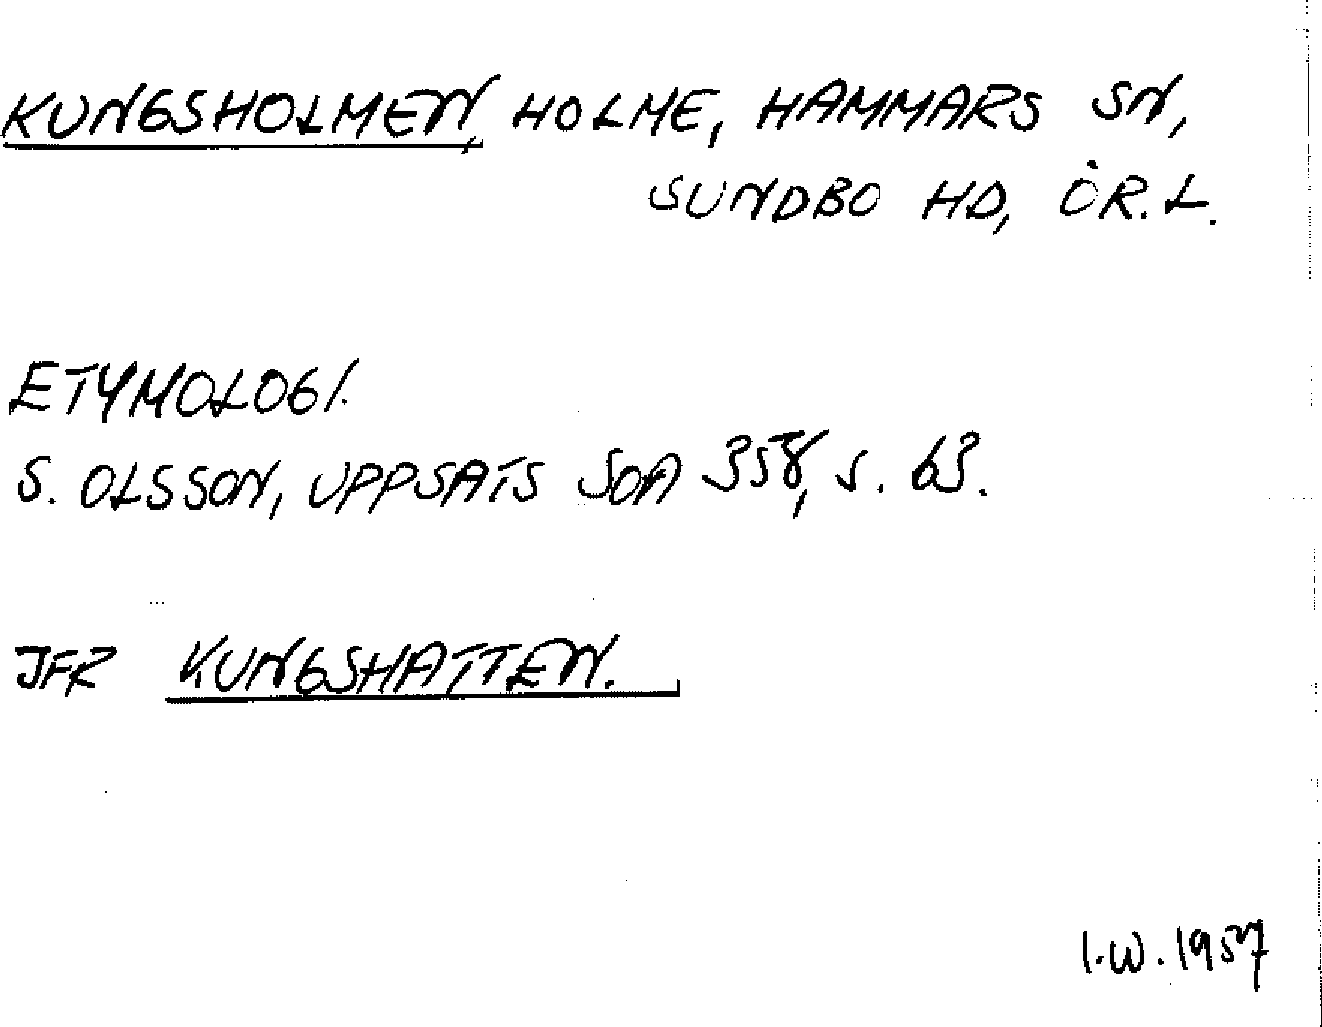 KUNGSHOLMEN, HOLME, HAMMARS SN,
SUNDBO HD, ÖR. L.
ETYMOLOGI.
S. OLSSON, UPPSATS SOA 358, s. 63.
JFR KUNGSHATTEN.
I.W. 1957